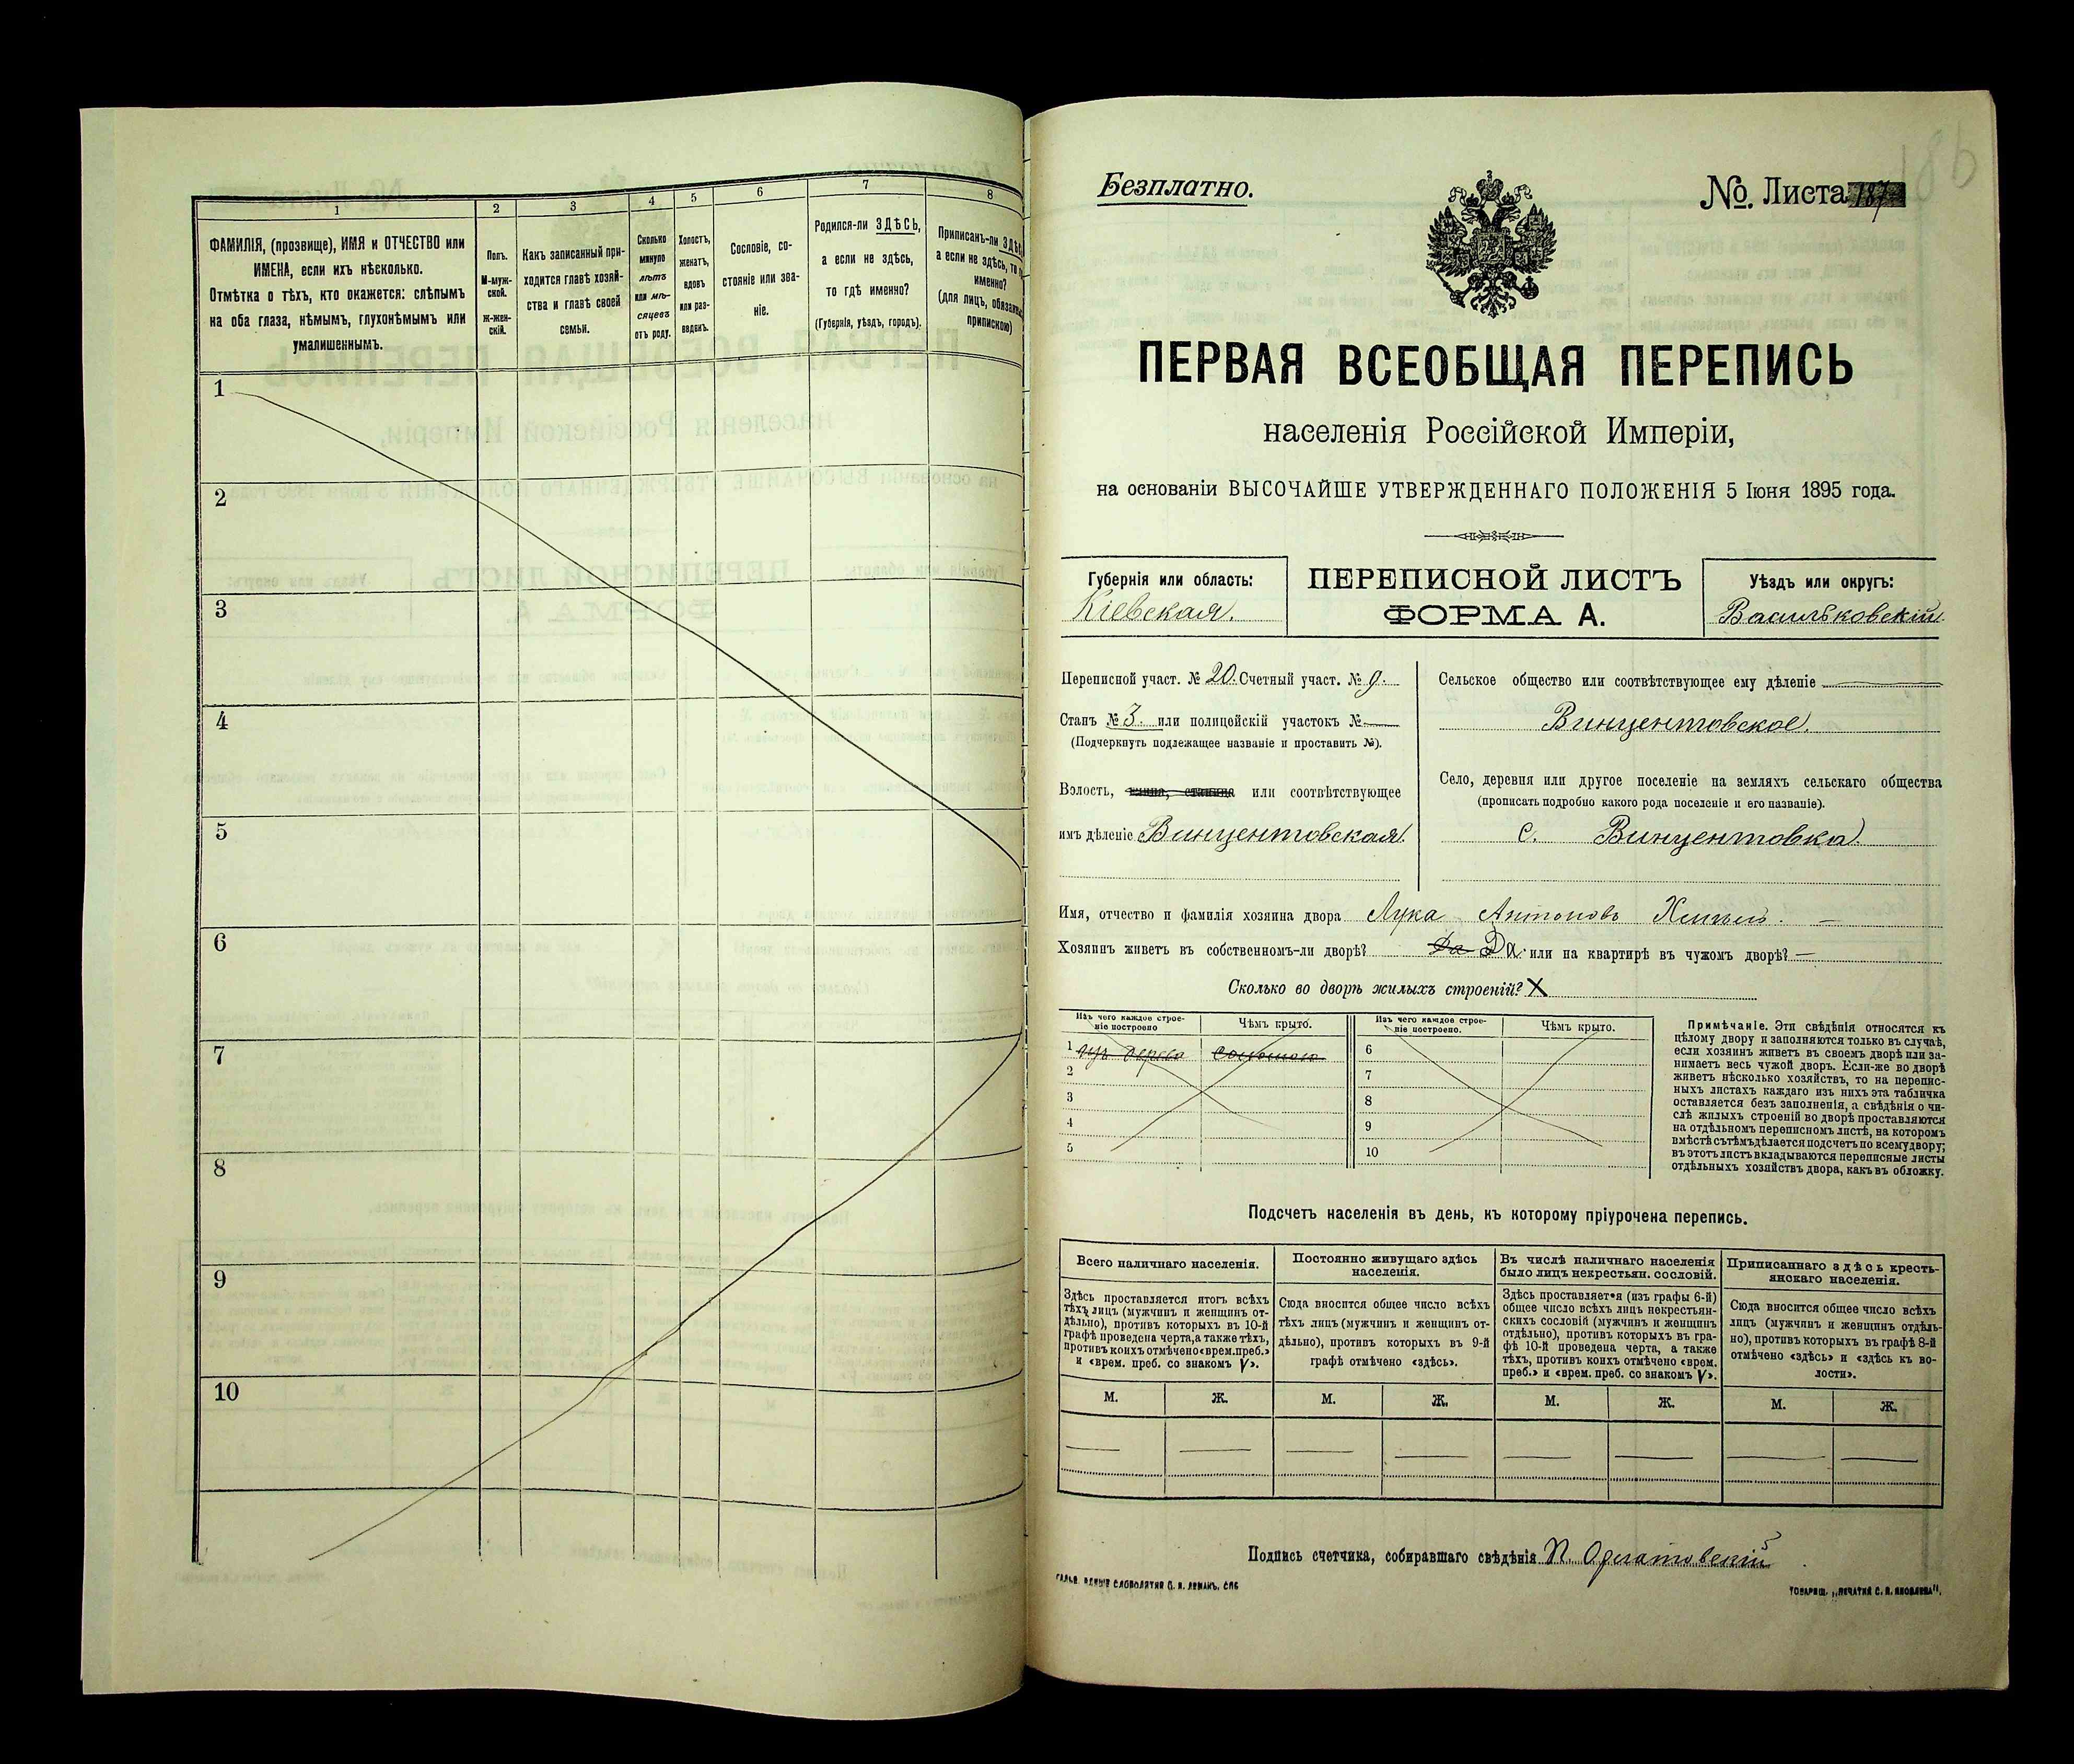 1
2
3
4
5
6
7
8
ФАМИЛІЯ, (прозвище), ИМЯ и ОТЧЕСТВО или
ИМЕНА, если ихъ нѣсколько.
Отмѣтка о тѣхъ, кто окажется: слѣпымъ
на оба глаза, нѣмымъ, глухонѣмымъ или
умалишеннымъ.
Полъ.
М-муж-
ской.
Ж-жен-
скій.
Какъ записанный при-
ходится главѣ хозяй-
ства и главѣ своей
семьи.
Сколько
минуло
лѣтъ
или мѣ-
сяцевъ
отъ роду.
Холостъ,
женатъ,
вдовъ
или раз-
веденъ.
Сословіе, со-
стояніе или зва-
ніе.
Родился-ли ЗДѢСЬ,
а если не здѣсь,
то гдѣ именно?
(Губернія, уѣздъ, городъ).
Приписанъ-ли ЗДѢ
а если не здѣсь, то
именно?
(для лицъ, обязанны
припискою)
1
2
3
4
5
6
7
8
9
10
Безплатно.
№. Листа 187
ПЕРВАЯ ВСЕОБЩАЯ ПЕРЕПИСЬ
населенія Россійской Имперіи,
на основаніи ВЫСОЧАЙШЕ УТВЕРЖДЕННАГО ПОЛОЖЕНІЯ 5 Іюня 1895 года.
Губернія или область:
Кіевская.
ПЕРЕПИСНОЙ ЛИСТЪ
ФОРМА А.
Уѣздъ или округъ:
Васильковскій
Переписной участ. № 20. Счетный участ. № 9.
Станъ № 3. или полицейскій участокъ № —
(Подчеркнуть подлежащее названіе и проставить №).
Волость, гмина, станица или соотвѣтствующее
имъ дѣленіе Винцентовская.
Сельское общество или соотвѣтствующее ему дѣленіе
Винцентовское.
Село, деревня или другое поселеніе на земляхъ сельскаго общества
(прописать подробно какого рода поселеніе и его названіе).
с. Винцентовка.
Имя, отчество и фамилія хозяина двора Лука Антоновъ
Хозяинъ живетъ въ собственномъ-ли дворѣ? Да Да. или на квартирѣ въ чужомъ дворѣ? —
Сколько во дворѣ жилыхъ строеній? X
Изъ чего каждое строе-
ніе построено
Чѣмъ крыто.
Изъ чего каждое строе-
ніе построено.
Чѣмъ крыто.
1 изъ дерева соломою
2
3
4
5
6
7
8
9
10
Примѣчаніе. Эти свѣдѣнія относятся къ
цѣлому двору и заполняются только въ случаѣ,
если хозяинъ живетъ въ своемъ дворѣ или за-
нимаетъ весь чужой дворъ. Если-же во дворѣ
живетъ нѣсколько хозяйствъ, то на перепис-
ныхъ листахъ каждаго изъ нихъ эта табличка
оставляется безъ заполненія, а свѣдѣнія о чи-
слѣ жилыхъ строеній во дворѣ проставляются
на отдѣльномъ переписномъ листѣ, на которомъ
вмѣстѣ съ тѣмъ дѣлается подсчетъ по всему двору;
въ этотъ листъ вкладываются переписные листы
отдѣльныхъ хозяйствъ двора, какъ въ обложку.
Подсчетъ населенія въ день, къ которому пріурочена перепись.
Всего наличнаго населенія.
Постоянно живущаго здѣсь
населенія.
Въ числѣ наличнаго населенія
было лицъ некрестьян. сословій.
Приписаннаго здѣсь кресть-
янскаго населенія.
Здѣсь проставляется итогъ всѣхъ
тѣхъ лицъ (мужчинъ и женщинъ от-
дѣльно), противъ которыхъ въ 10-й
графѣ проведена черта, а также тѣхъ,
противъ коихъ отмѣчено «врем. преб.»
и «врем. преб. со знакомъ V».
Сюда вносится общее число всѣхъ
тѣхъ лицъ (мужчинъ и женщинъ от-
дѣльно), противъ которыхъ въ 9-й
графѣ отмѣчено «здѣсь».
Здѣсь проставляется (изъ графы 6-й)
общее число всѣхъ лицъ некрестьян-
скихъ сословій (мужчинъ и женщинъ
отдѣльно), противъ которыхъ въ гра-
фѣ 10-й проведена черта, а также
тѣхъ, противъ коихъ отмѣчено «врем.
преб.» и «врем. преб. со знакомъ V».
Сюда вносится общее число всѣхъ
лицъ (мужчинъ и женщинъ отдѣль-
но), противъ которыхъ въ графѣ 8-й
отмѣчено «здѣсь» и «здѣсь къ во-
лости».
М. Ж. М. Ж. М. Ж. М. Ж.
— — — — — — — —
Подпись счетчика, собиравшаго свѣдѣнія П.
ТОВАРИЩ. „ПЕЧАТНЯ С. П. ЯКОВЛЕВА".